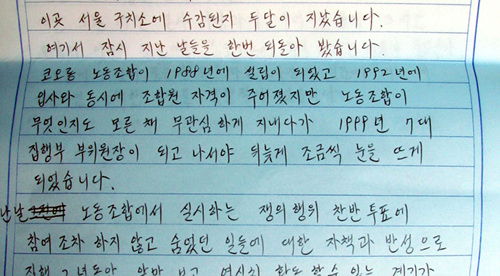 이곳 서울 구치소에 수감된지 두달이 지났습니다.
여기서 잠시 지난 날들을 한번 되돌아 봤습니다.
코오롱 노동조합이 1988년에 설립이 되었고 1992년에
입사와 동시에 조합원 자격이 주어졌지만 노동조합이
무엇인지도 모른 채 무관심 하게 지내다가 1999년 7대
집행부 부위원장이 되고 나서야 뒤늦게 조금씩 눈을 뜨게
되었습니다.
난날 노동조합에서 실시하는 쟁의행위 찬반투표에
참여 조차 하지 않고 숨었던 일들에 대한 자책과 반성으로